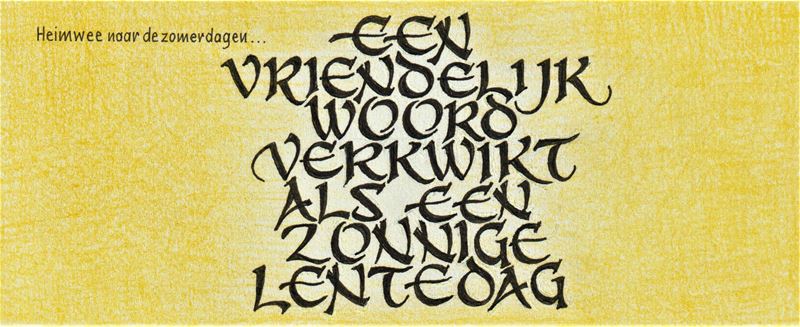 Heimwee naar de zomerdagen...
EEN
VRIENDELIJK
WOORD
VERKWIKT
ALS EEN
ZONNIGE
LENTEDAG